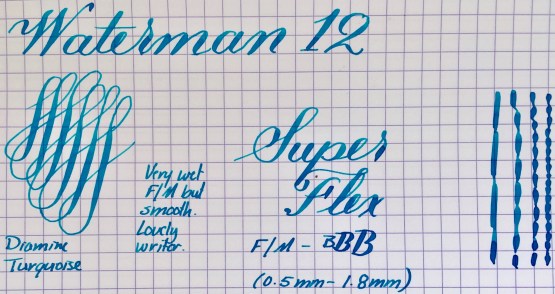 Waterman 12
Very wet
F/M but
smooth.
Lovely
writer.
Diamine
Turquoise
Super
Flex
F/M - BBB
(0.5mm-1.8mm)